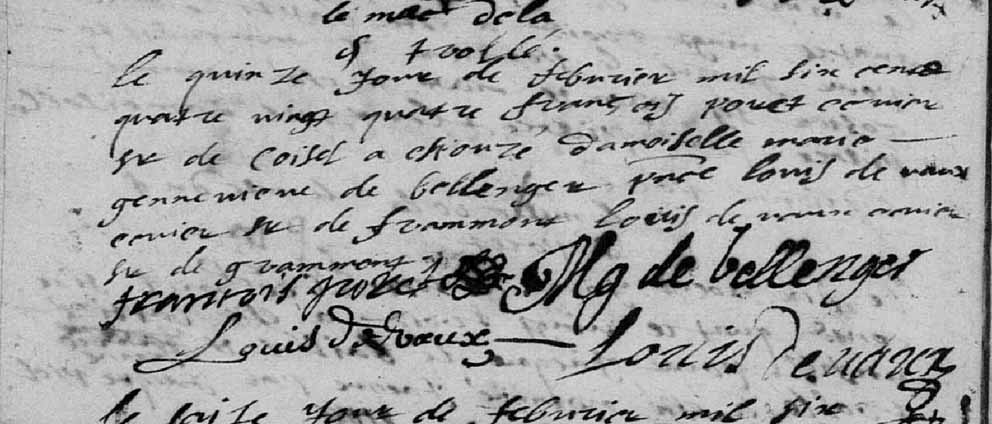 le mar dela
trollé.
le quinze Jour de febvrier mil six cent
quatre vingt quatre françois poret ecuier
sr de Coisel a epouzé damoiselle marie
gennevieve de bellenger pnce louis de vaux
ecuier sr de frammont louis de vaux ecuier
sr de grammont
francois poret Mg de bellenger
Louis De vaux Louis De vaux
le seize Jour de febvrier mil six